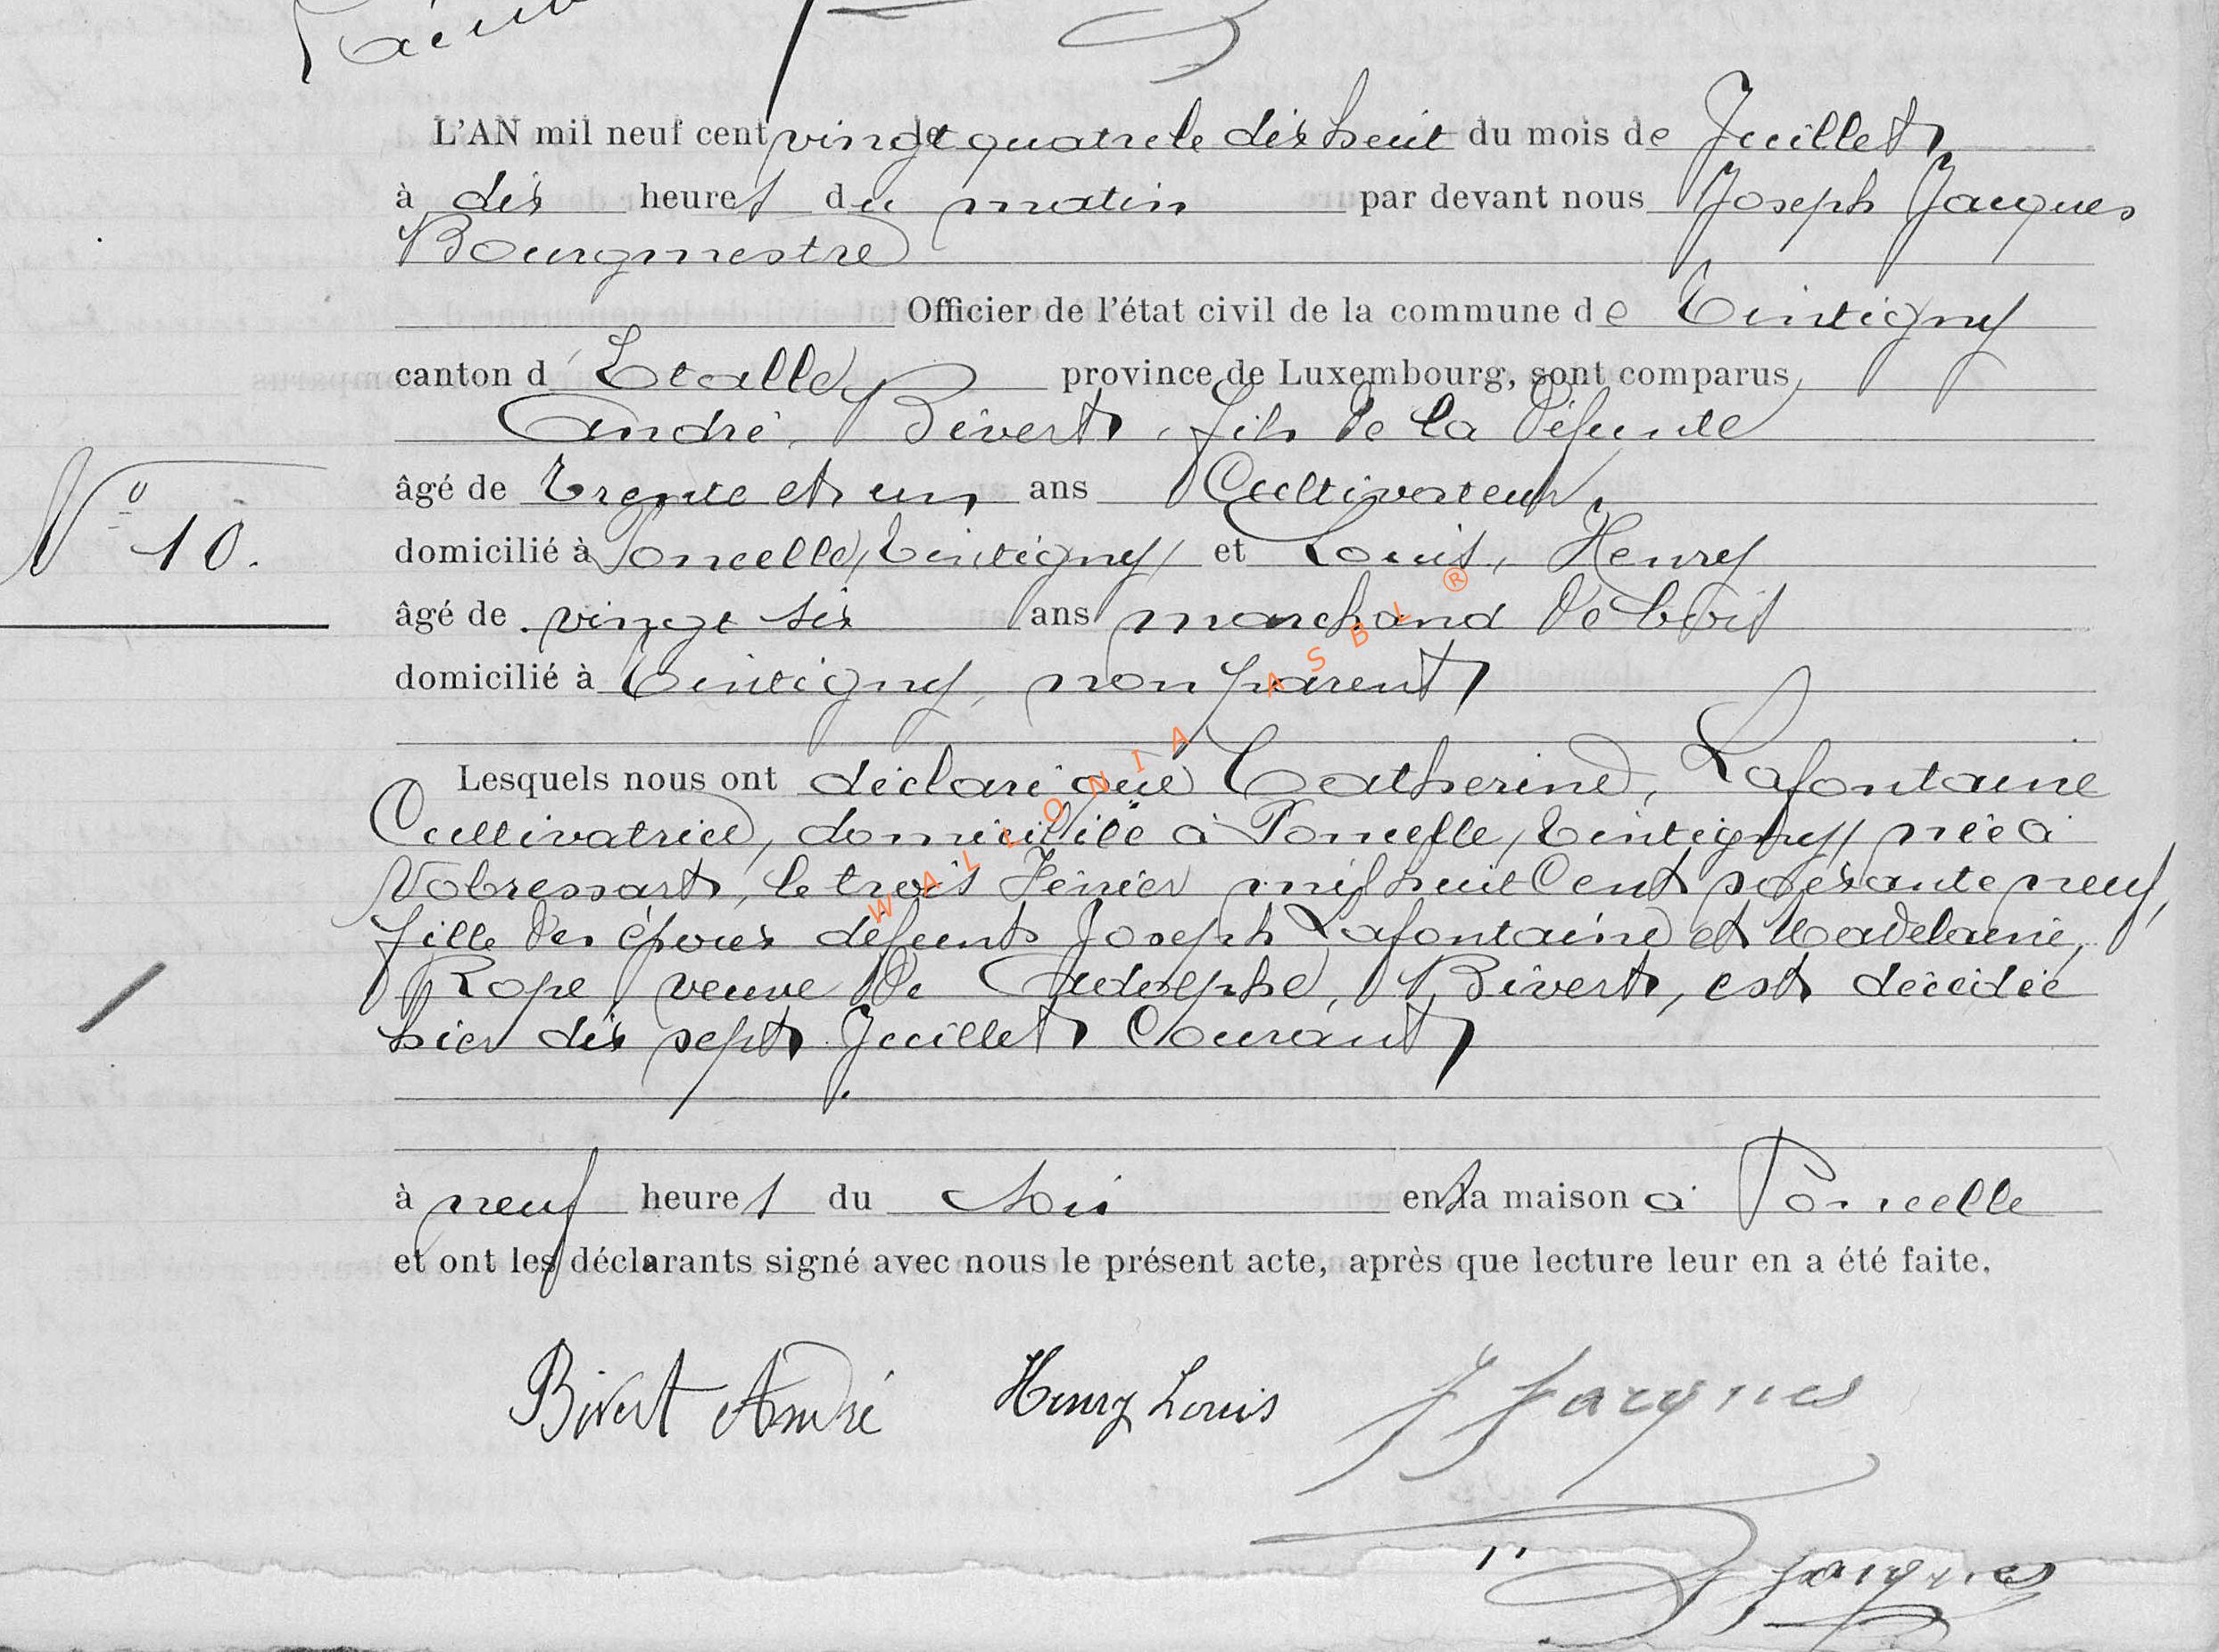 L'AN mil neuf cent vingt quatre le dix huit du mois de Juillet
à dix heures du matin par devant nous Joseph Jacques
Bourgmestre
Officier de l'état civil de la commune de Tintigny
canton d'Etalle province de Luxembourg, sont comparus
André, Bivert, fils de la défunte
âgé de trente et un ans Cultivateur,
N° 10.
domicilié à Poncelle, (Tintigny) et Louis, Henry
âgé de vingt six ans marchand de bois
domicilié à Tintigny, non parent
Lesquels nous ont déclaré que Catherine, Lafontaine
Cultivatrice, domiciliée à Poncelle, (Tintigny) née à
Vobressart, le trois Février mil huit Cent soixante neuf,
fille des époux défunts Joseph Lafontaine et Madelaine,
Rope veuve de Adolphe, Bivert, est décédée
hier dix sept Juillet Courant
à neuf heures du soir en sa maison à Poncelle
et ont les déclarants signé avec nous le présent acte, après que lecture leur en a été faite.
Bivert André Henry Louis J Jacques
Jacques
WALLONIA ASBL ®